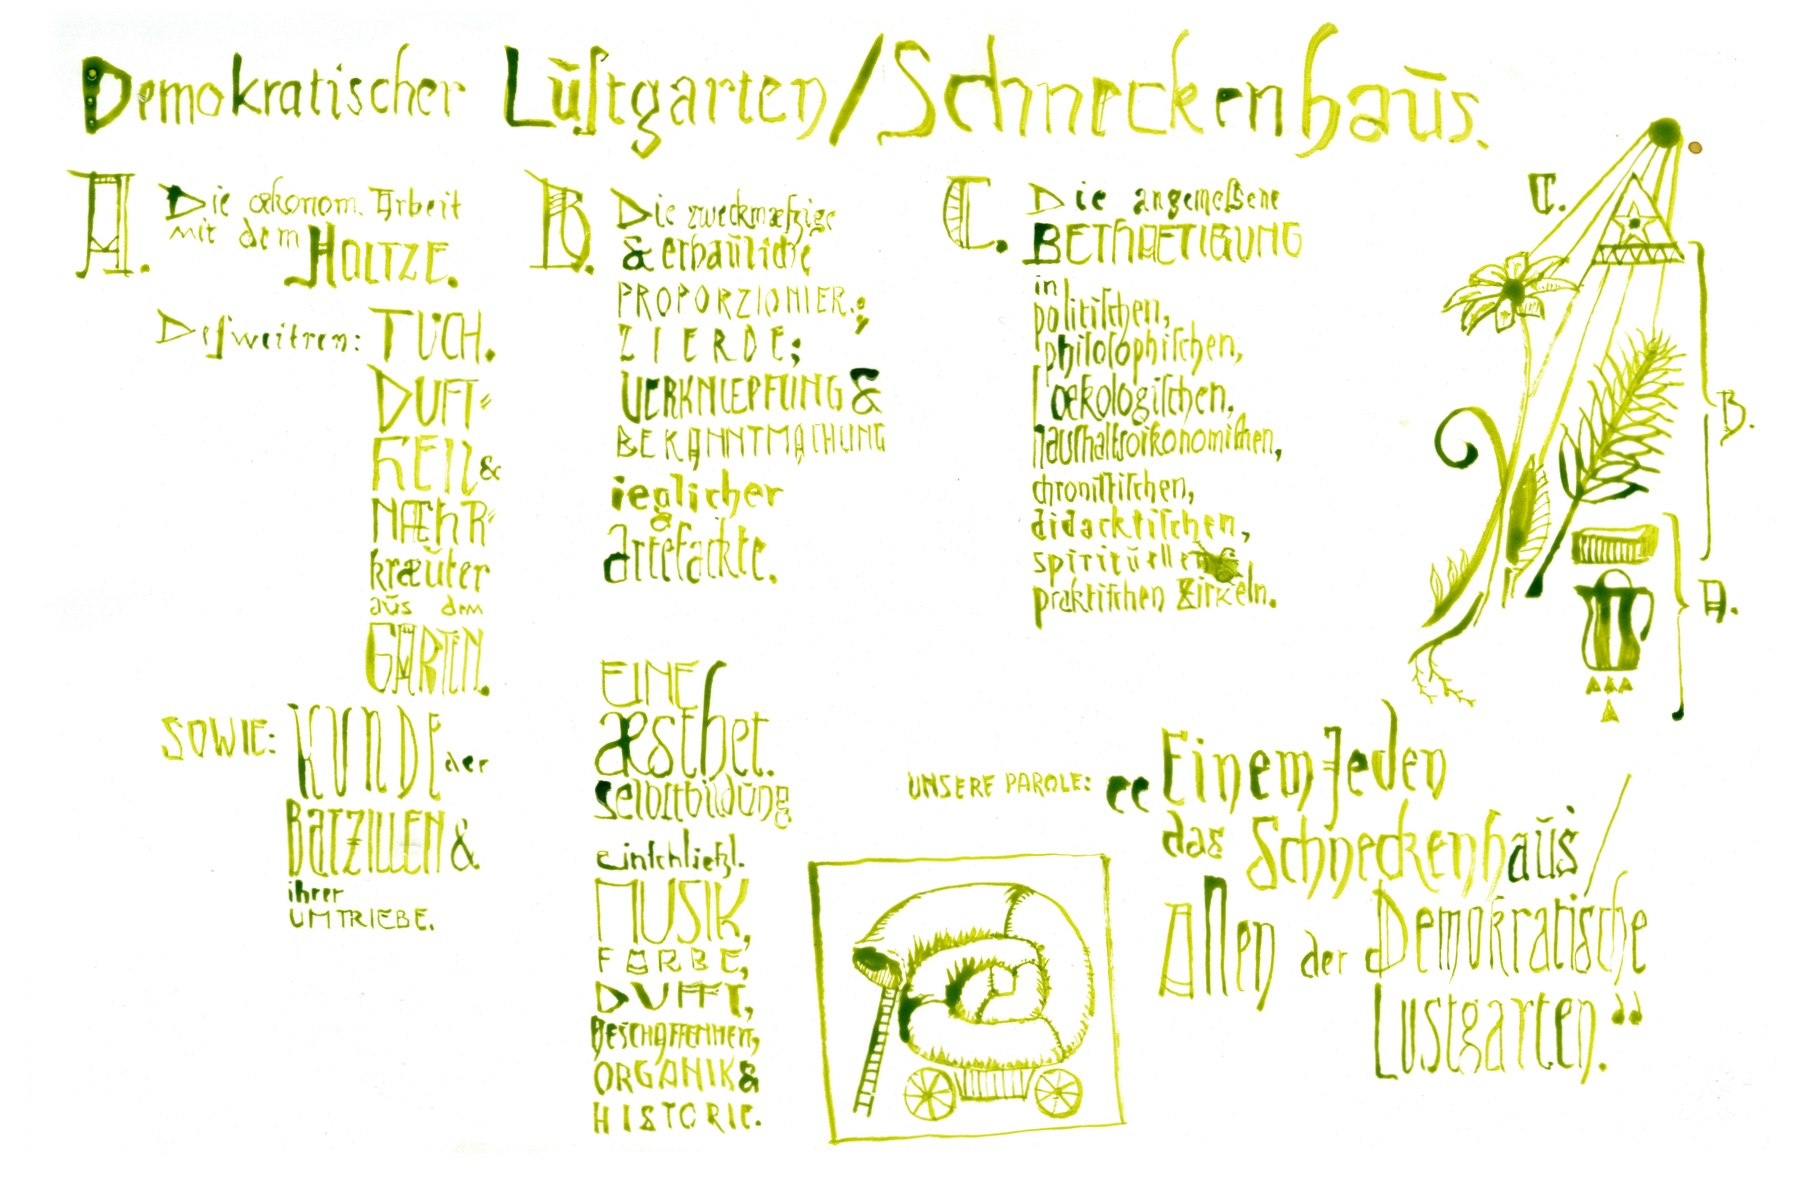 Demokratischer Lūſtgarten/Schneckenhaūs.
A.
Die œkonom. Arbeit
mit dem HOLTZE.
Deſweitren: TUCH.
DUFT=
HEIL &
NÆHR=
kræŭter
aŭs dem
GARTEN.
SOWIE: KUNDE der
BATZILLEN &
ihrer
UMTRIEBE.
B.
Die zweckmæſzige
& erbaūliche
PROPORZIONIER.;
ZIERDE;
VERKNŒPFUNG &
BEKANNTMACHUNG
ieglicher
artefackte.
EINE
æsthet.
selbſtbildūng
einſchlieſzl.
MUSIK,
FARBE,
DUFFT,
BESCHAFFENHEIT,
ORGANIK &
HISTORIE.
C.
Die angemeſſene
BETHÆTIGUNG
in
politiſchen,
philoſophiſchen,
œkologiſchen,
hauſhaltsoikonomiſchen,
chroniſtiſchen,
didacktiſchen,
spiritŭellen &
praktiſchen Zirkeln.
C.
B.
A.
UNSERE PAROLE: „Einem Jeden
das Schneckenhaūs /
Allen der Demokratische
Lustgarten.“